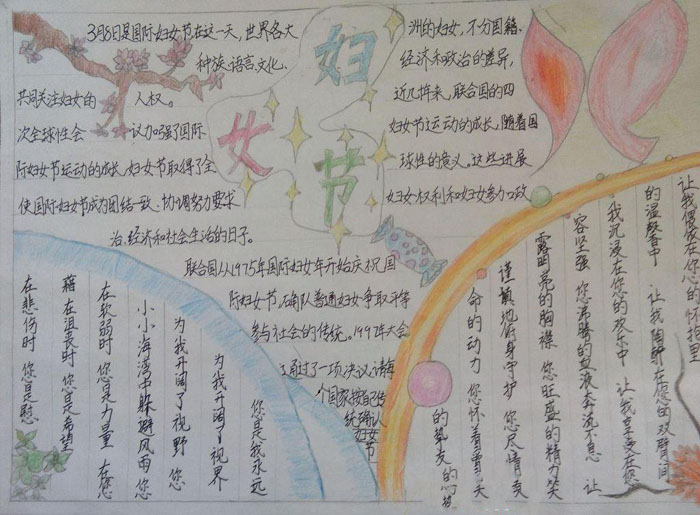 妇
女
节
3月8日是国际妇女节在这一天,世界各大
洲的妇女,不分国籍、
种族、语言、文化、
经济和政治的差异,
共同关注妇女的
人权。
近几拾来,联合国的四
次全球性会
议加强了国际
妇女节运动的成长,随着国
际妇女节运动的成长,妇女节取得了全
球性的意义。这些进展
使国际妇女节成为团结一致、协调努力要求
妇女权利和妇女参加政
治、经济和社会生活的日子。
联合国从1975年国际妇女年开始庆祝国
际妇女节,
普通妇女争取平等
参与社会的传统。1997年大会
通过了一项决议,请每
个国家按
统确认
妇女
节
让我偎依在您的怀抱里
的温馨中 让我陶醉在您的双臂间
我沉浸在您的欢乐中 让我享受在您
容坚强 您沸腾的血液奔流不息 让
露明亮的胸襟 您旺盛的精力笑
谨慎地俯身守护 您尽情
命的动力 您怀着
您是我永远
为我开阔了世界
为我开阔了视野 您
小小海湾中躲避风雨 您
在软弱时 您是力量 在您
藉在沮丧时 您是希望
在悲伤时 您是慰